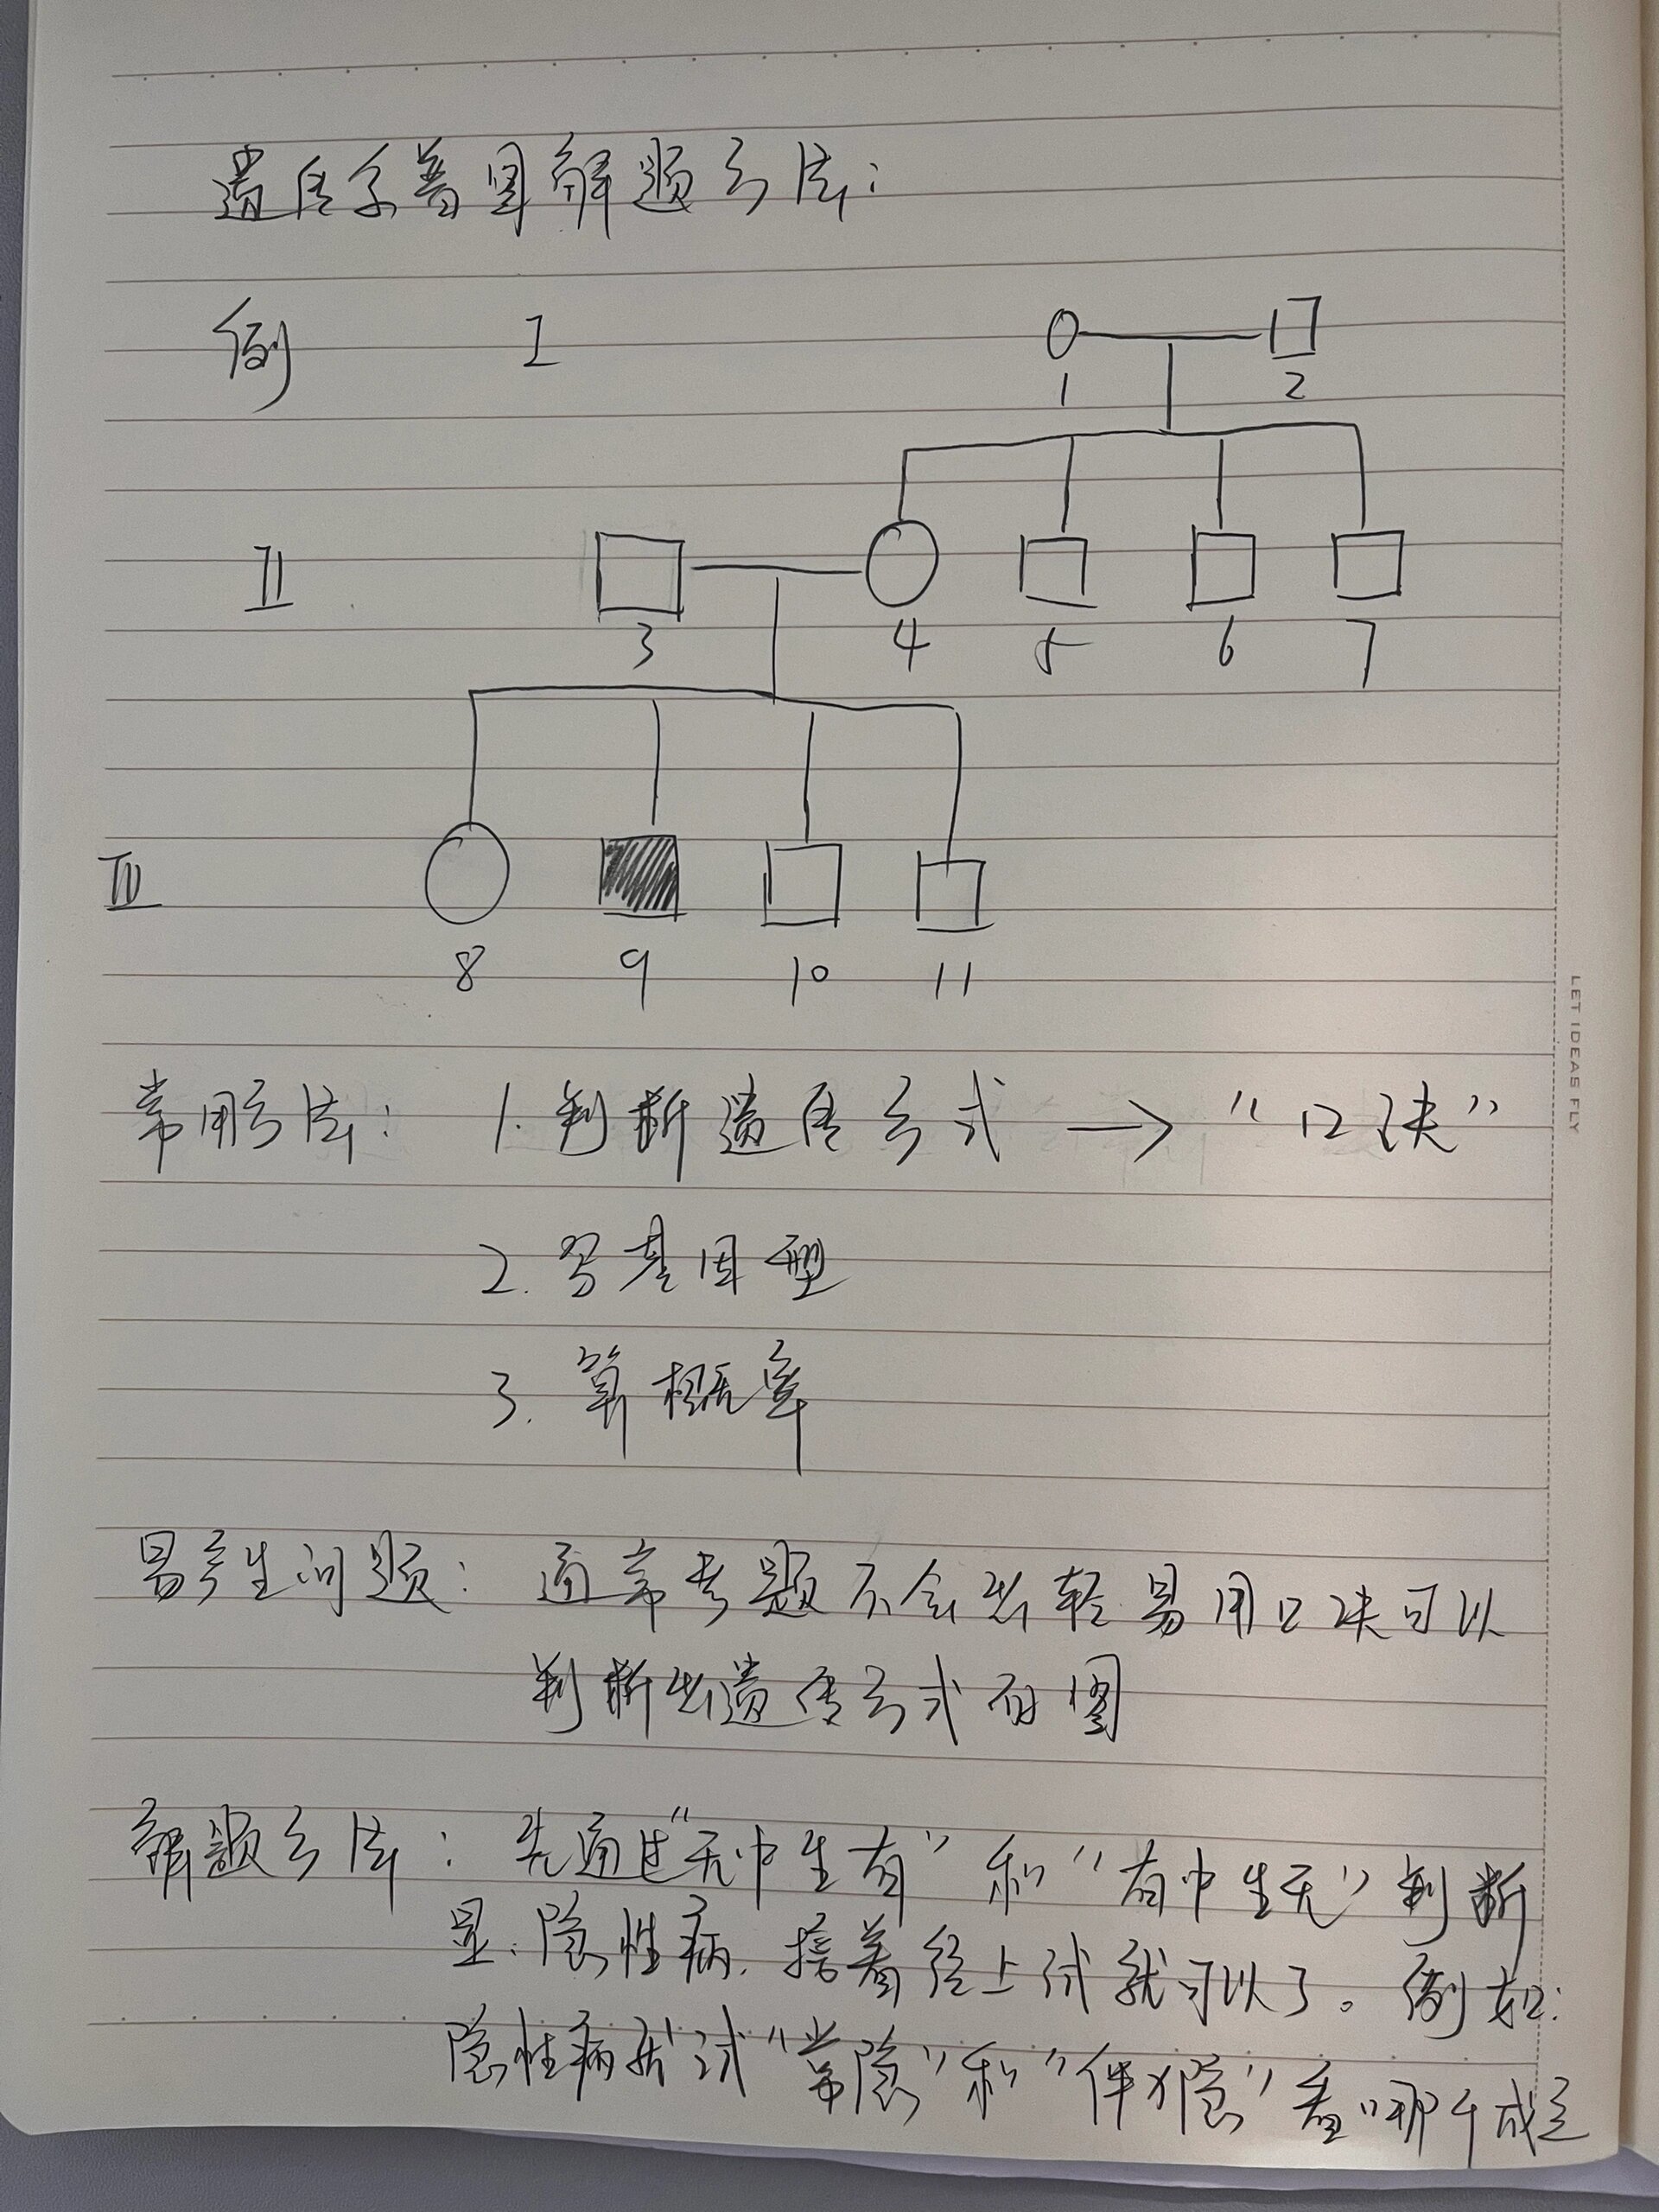 遗传系谱图解题方法：
例 I
1 2
II
3 4 5 6 7
III
8 9 10 11
常用方法： 1. 判断遗传方式 → “口诀”
2. 写基因型
3. 算概率
易产生问题： 通常考题不会出轻易用口诀可以
判断出遗传方式的图
解题方法： 先通过“无中生有”和“有中生无”判断
显、隐性病，接着往上试就可以了。例如：
隐性病就试“常隐”和“伴X隐”看哪个成立
LET IDEAS FLY